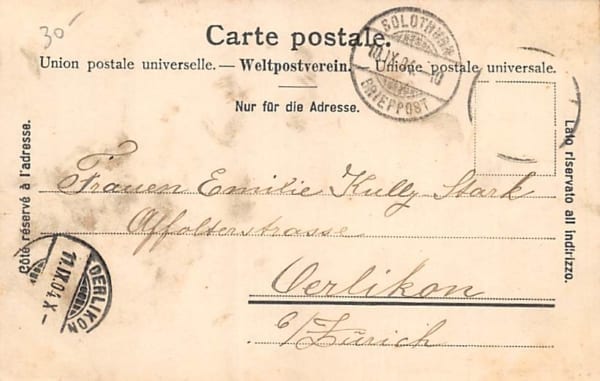 30-
Carte postale.
SOLOTHURN
BRIEFPOST
Union postale universelle. — Weltpostverein. — Unione postale universale.
Nur für die Adresse.
Côté réservé à l'adresse.
Lato riservato all indirizzo.
Frauen Emilie Kully Stark
Affolterstrasse
Oerlikon
b/Zürich
OERLIKON
11.IX.04.X-